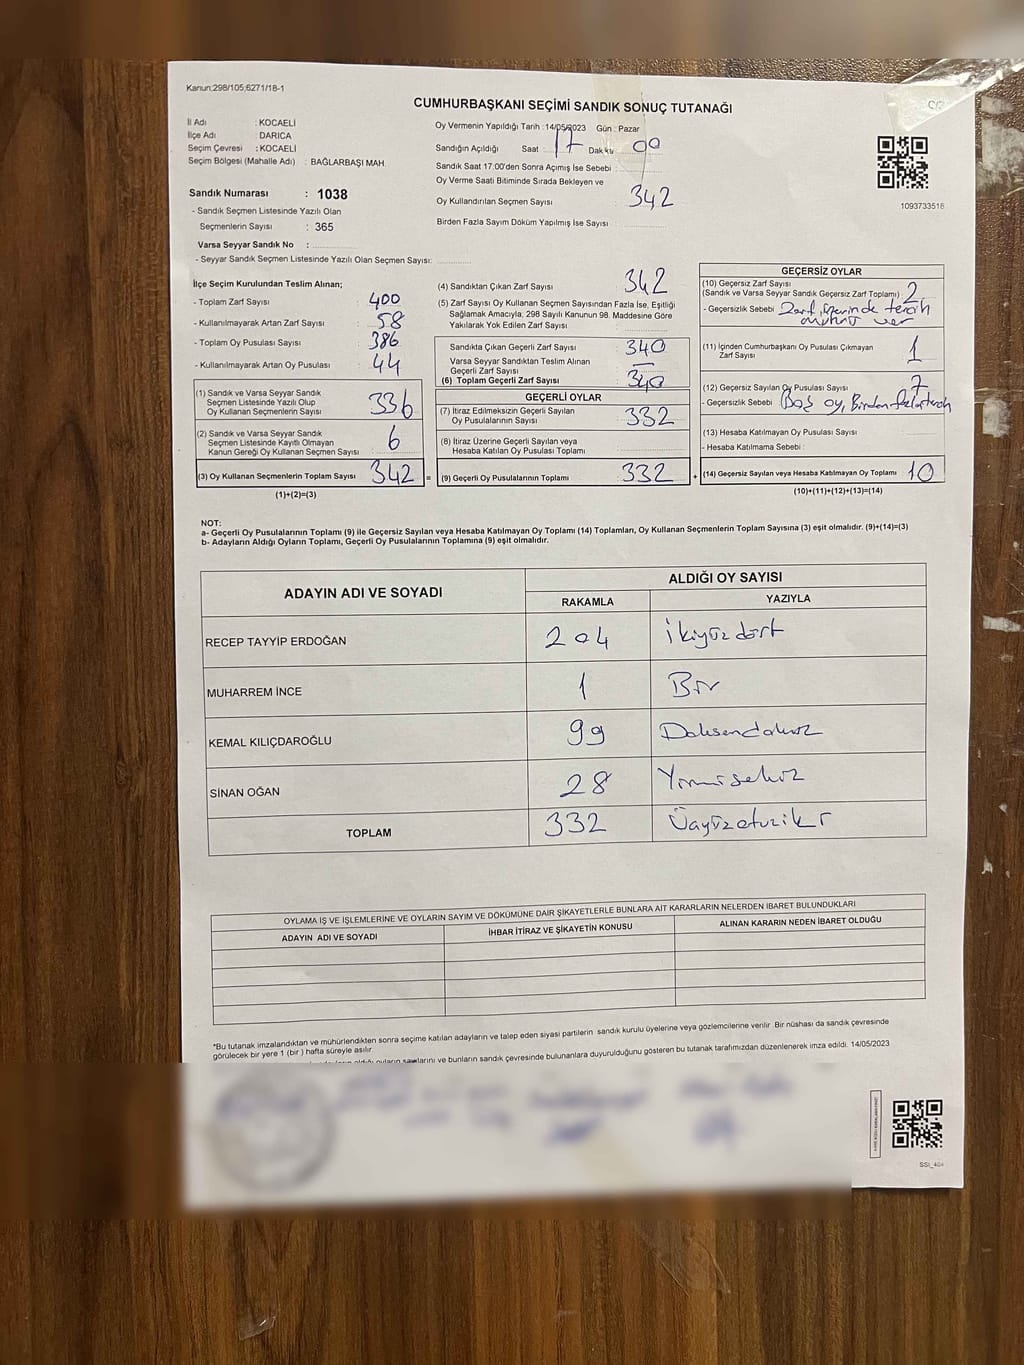 Kanun;298/105;6271/18-1
CUMHURBAŞKANI SEÇİMİ SANDIK SONUÇ TUTANAĞI
İl Adı : KOCAELİ
İlçe Adı : DARICA
Seçim Çevresi : KOCAELİ
Seçim Bölgesi (Mahalle Adı) : BAĞLARBAŞI MAH.
Sandık Numarası : 1038
- Sandık Seçmen Listesinde Yazılı Olan
Seçmenlerin Sayısı : 365
Varsa Seyyar Sandık No :
- Seyyar Sandık Seçmen Listesinde Yazılı Olan Seçmen Sayısı:
Oy Vermenin Yapıldığı Tarih :14/05/2023 Gün : Pazar
Sandığın Açıldığı Saat : 17 Dakika 00
Sandık Saat 17:00'den Sonra Açımış İse Sebebi :
Oy Verme Saati Bitiminde Sırada Bekleyen ve
Oy Kullandırılan Seçmen Sayısı 342
Birden Fazla Sayım Döküm Yapılmış İse Sayısı
1093733518
İlçe Seçim Kurulundan Teslim Alınan;
- Toplam Zarf Sayısı : 400
- Kullanılmayarak Artan Zarf Sayısı : 58
- Toplam Oy Pusulası Sayısı : 386
- Kullanılmayarak Artan Oy Pusulası : 44
(1) Sandık ve Varsa Seyyar Sandık
Seçmen Listesinde Yazılı Olup
Oy Kullanan Seçmenlerin Sayısı : 336
(2) Sandık ve Varsa Seyyar Sandık
Seçmen Listesinde Kayıtlı Olmayan
Kanun Gereği Oy Kullanan Seçmen Sayısı 6
(3) Oy Kullanan Seçmenlerin Toplam Sayısı 342 =
(1)+(2)=(3)
(4) Sandıktan Çıkan Zarf Sayısı : 342
(5) Zarf Sayısı Oy Kullanan Seçmen Sayısından Fazla İse, Eşitliği
Sağlamak Amacıyla, 298 Sayılı Kanunun 98. Maddesine Göre
Yakılarak Yok Edilen Zarf Sayısı :
Sandıkta Çıkan Geçerli Zarf Sayısı : 340
Varsa Seyyar Sandıktan Teslim Alınan
Geçerli Zarf Sayısı : —
(6) Toplam Geçerli Zarf Sayısı : 340
GEÇERLİ OYLAR
(7) İtiraz Edilmeksizin Geçerli Sayılan
Oy Pusulasının Sayısı : 332
(8) İtiraz Üzerine Geçerli Sayılan veya
Hesaba Katılan Oy Pusulası Toplamı
(9) Geçerli Oy Pusulalarının Toplamı : 332 +
GEÇERSİZ OYLAR
(10) Geçersiz Zarf Sayısı
(Sandık ve Varsa Seyyar Sandık Geçersiz Zarf Toplamı) 2
- Geçersizlik Sebebi : Zarf üzerinde tercih
mührü var
(11) İçinden Cumhurbaşkanı Oy Pusulası Çıkmayan
Zarf Sayısı 1
(12) Geçersiz Sayılan Oy Pusulası Sayısı 7
- Geçersizlik Sebebi : Boş oy, Birden fazla tercih
(13) Hesaba Katılmayan Oy Pusulası Sayısı
- Hesaba Katılmama Sebebi :
(14) Geçersiz Sayılan veya Hesaba Katılmayan Oy Toplamı 10
(10)+(11)+(12)+(13)=(14)
NOT:
a- Geçerli Oy Pusulalarının Toplamı (9) ile Geçersiz Sayılan veya Hesaba Katılmayan Oy Toplamı (14) Toplamları, Oy Kullanan Seçmenlerin Toplam Sayısına (3) eşit olmalıdır. (9)+(14)=(3)
b- Adayların Aldığı Oyların Toplamı, Geçerli Oy Pusulalarının Toplamına (9) eşit olmalıdır.
ADAYIN ADI VE SOYADI ALDIĞI OY SAYISI
RAKAMLA YAZIYLA
RECEP TAYYİP ERDOĞAN 204 İkiyüzdört
MUHARREM İNCE 1 Bir
KEMAL KILIÇDAROĞLU 99 Doksandokuz
SİNAN OĞAN 28 Yirmisekiz
TOPLAM 332 Üçyüzotuziki
OYLAMA İŞ VE İŞLEMLERİNE VE OYLARIN SAYIM VE DÖKÜMÜNE DAİR ŞİKAYETLERLE BUNLARA AİT KARARLARIN NELERDEN İBARET BULUNDUKLARI
ADAYIN ADI VE SOYADI İHBAR İTİRAZ VE ŞİKAYETİN KONUSU ALINAN KARARIN NEDEN İBARET OLDUĞU
*Bu tutanak imzalandıktan ve mühürlendikten sonra seçime katılan adayların ve talep eden siyasi partilerin sandık kurulu üyelerine veya gözlemcilerine verilir .Bir nüshası da sandık çevresinde
görülecek bir yere 1 (bir ) hafta süreyle asılır.
oyların sayılarını ve bunların sandık çevresinde bulunanlara duyurulduğunu gösteren bu tutanak tarafımızdan düzenlenerek imza edildi. 14/05/2023
SSI_404